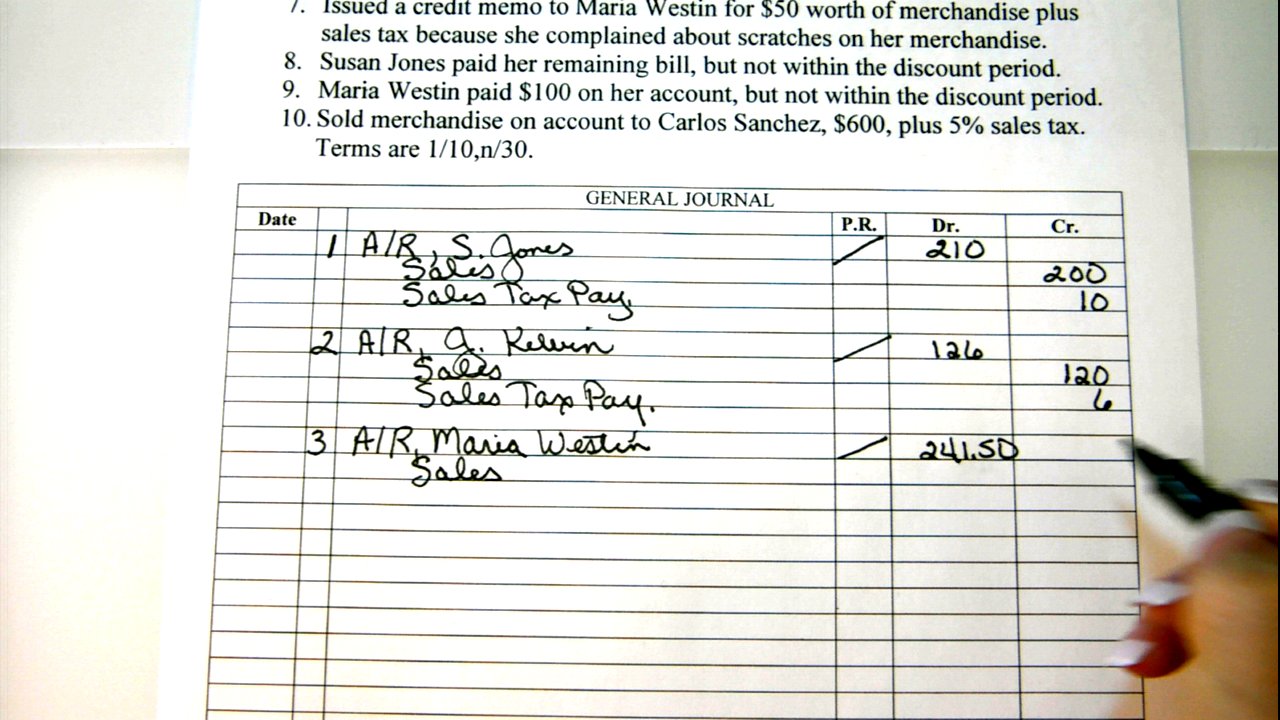 7. Issued a credit memo to Maria Westin for $50 worth of merchandise plus
sales tax because she complained about scratches on her merchandise.
8. Susan Jones paid her remaining bill, but not within the discount period.
9. Maria Westin paid $100 on her account, but not within the discount period.
10. Sold merchandise on account to Carlos Sanchez, $600, plus 5% sales tax.
Terms are 1/10,n/30.
GENERAL JOURNAL
Date P.R. Dr. Cr.
1 A/R, S. Jones 210
Sales 200
Sales Tax Pay. 10
2 A/R, A. Kelvin 126
Sales 120
Sales Tax Pay. 6
3 A/R, Maria Westin 241.50
Sales